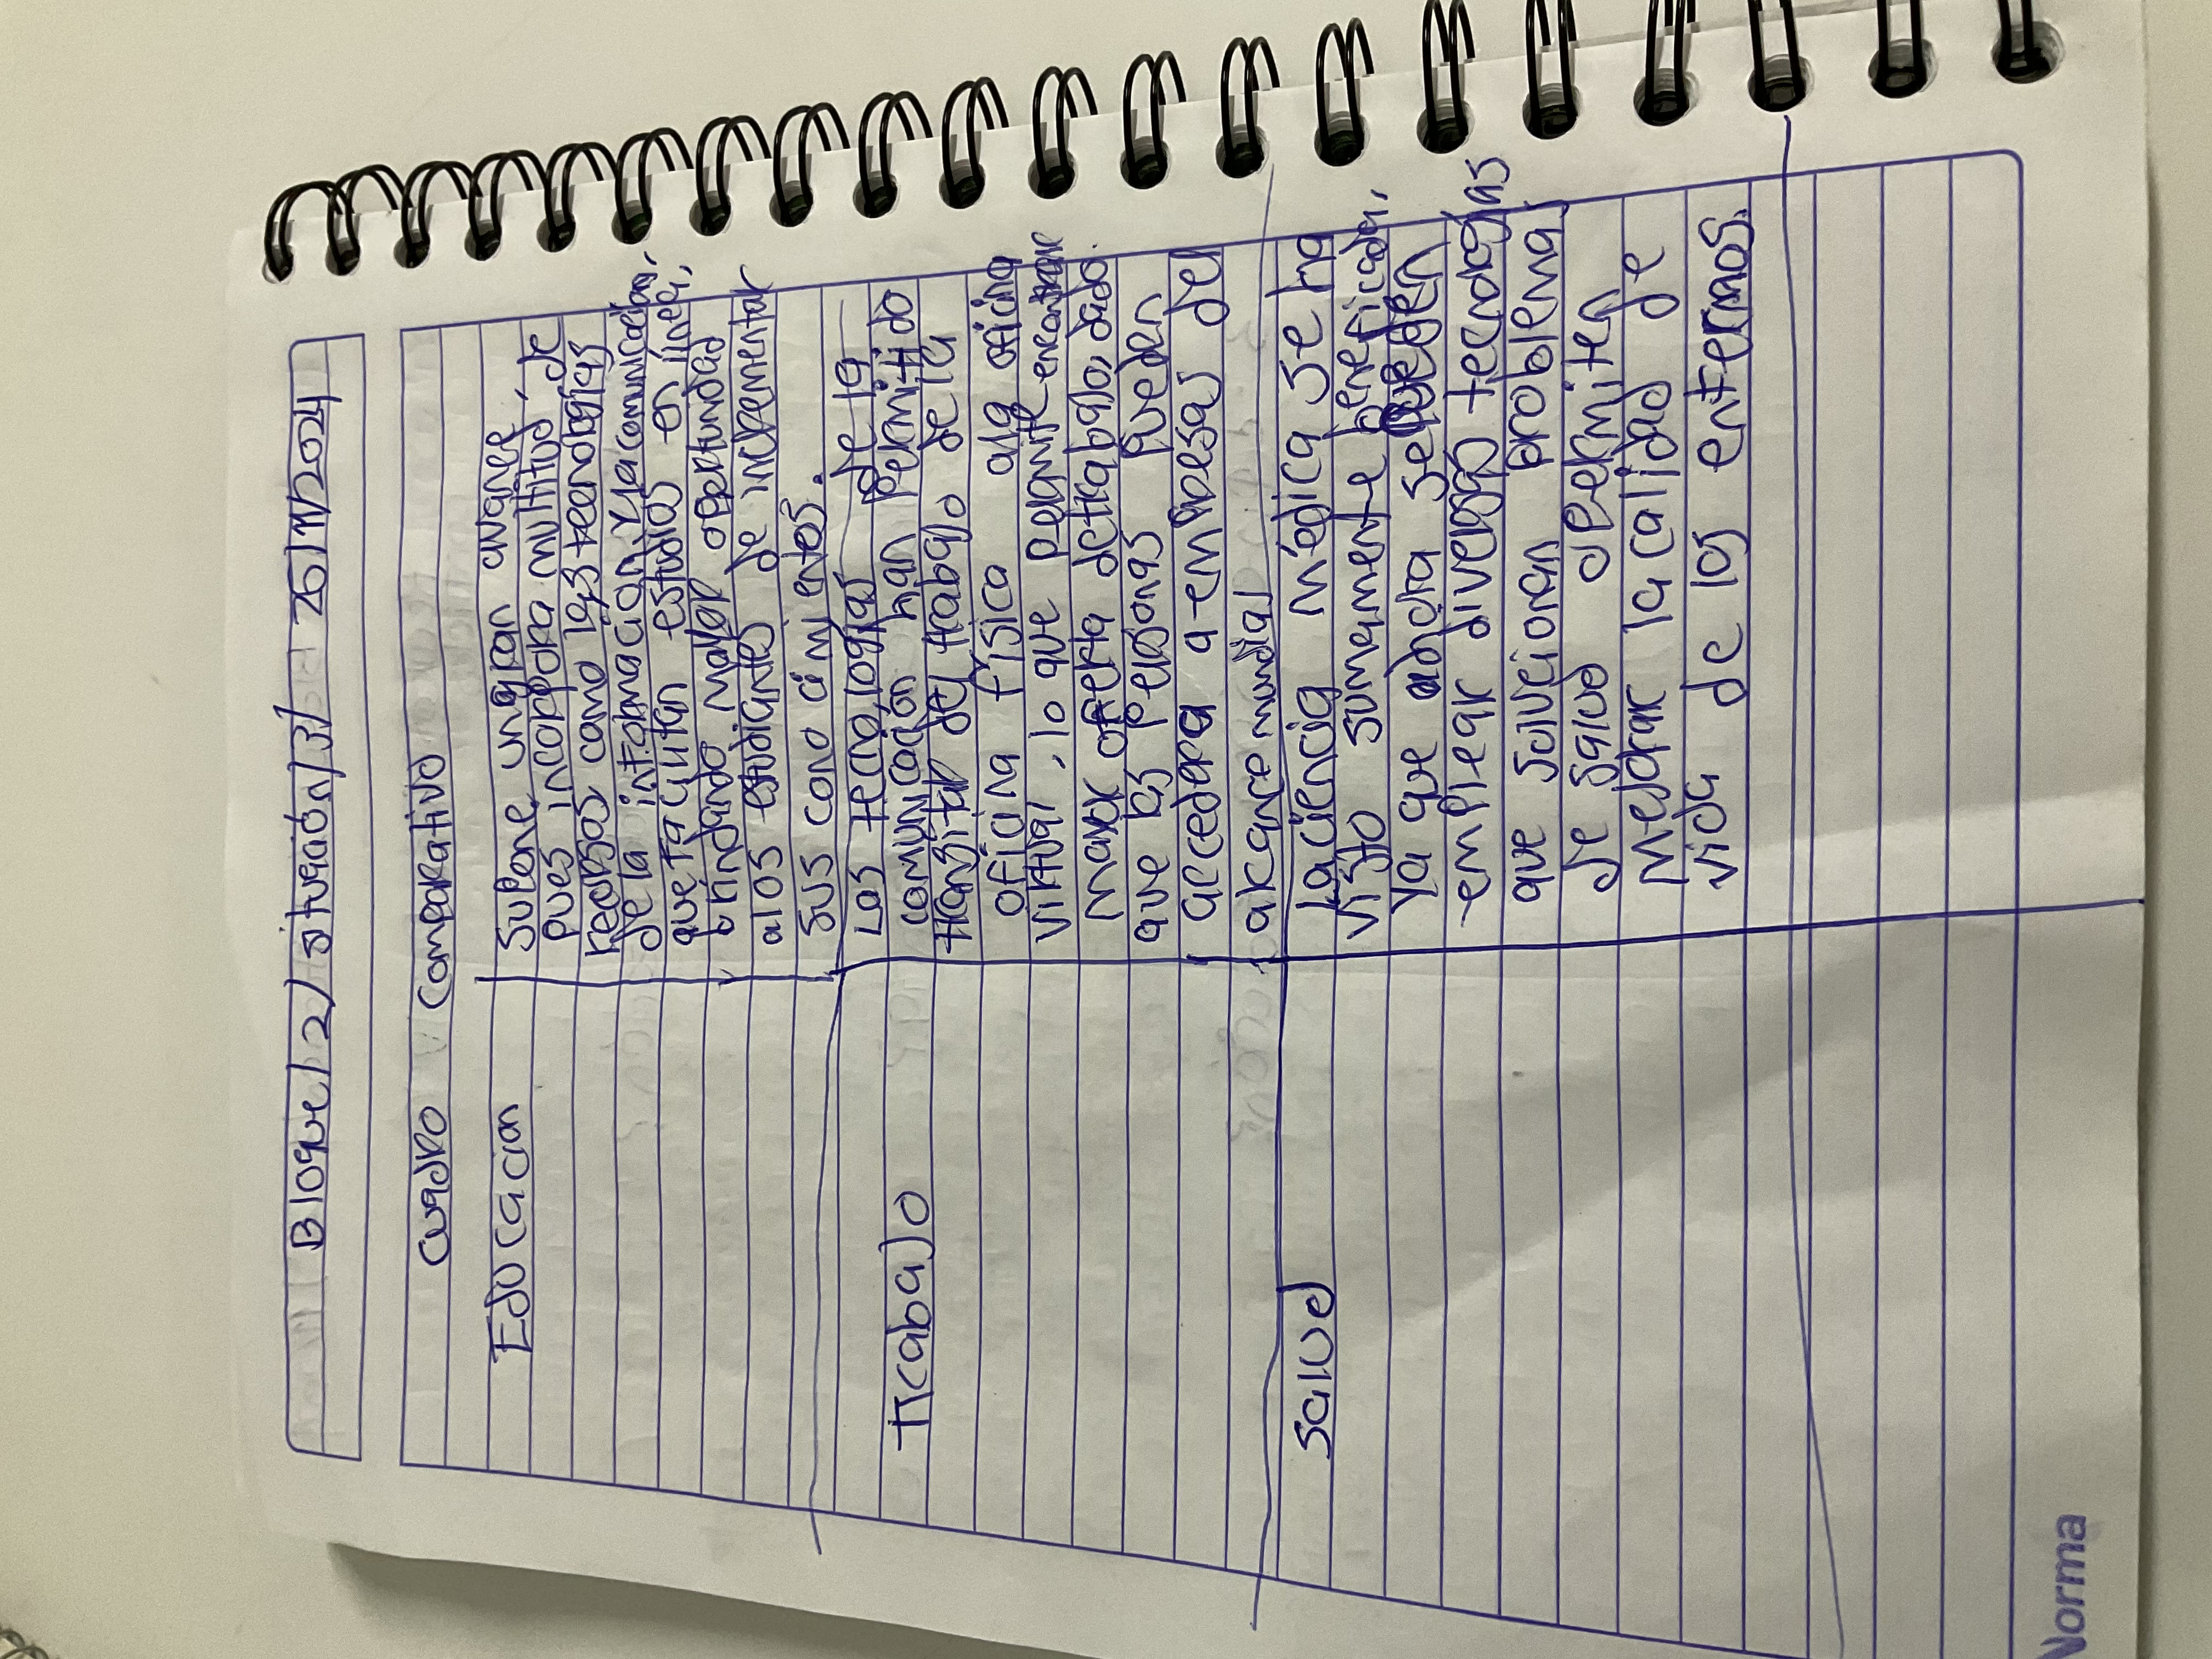 Bloque / 2 / situación / 3 / 26/11/2024
cuadro comparativo
Educacion
Supone un gran avance,
pues incorpora multitud de
recursos como las tecnologias
de la informacion y la comunicación,
que facilitan estudios en linea,
brindando mayor oportunidad
a los estudiantes de incrementar
sus conocimientos.
Trabajo
Las tecnologias de la
comunicación han permitido
transitar del trabajo de la
oficina física a la oficina
virtual, lo que permite encontrar
mayor oferta de trabajo, dado
que las personas pueden
acceder a empresas del
alcance mundial
salud
La ciencia médica se ha
visto sumamente beneficiada,
ya que ahora se pueden
emplear diversas tecnologias
que solucionan problema
de salud permiten
mejorar la calidad de
vida de los enfermos.
Norma